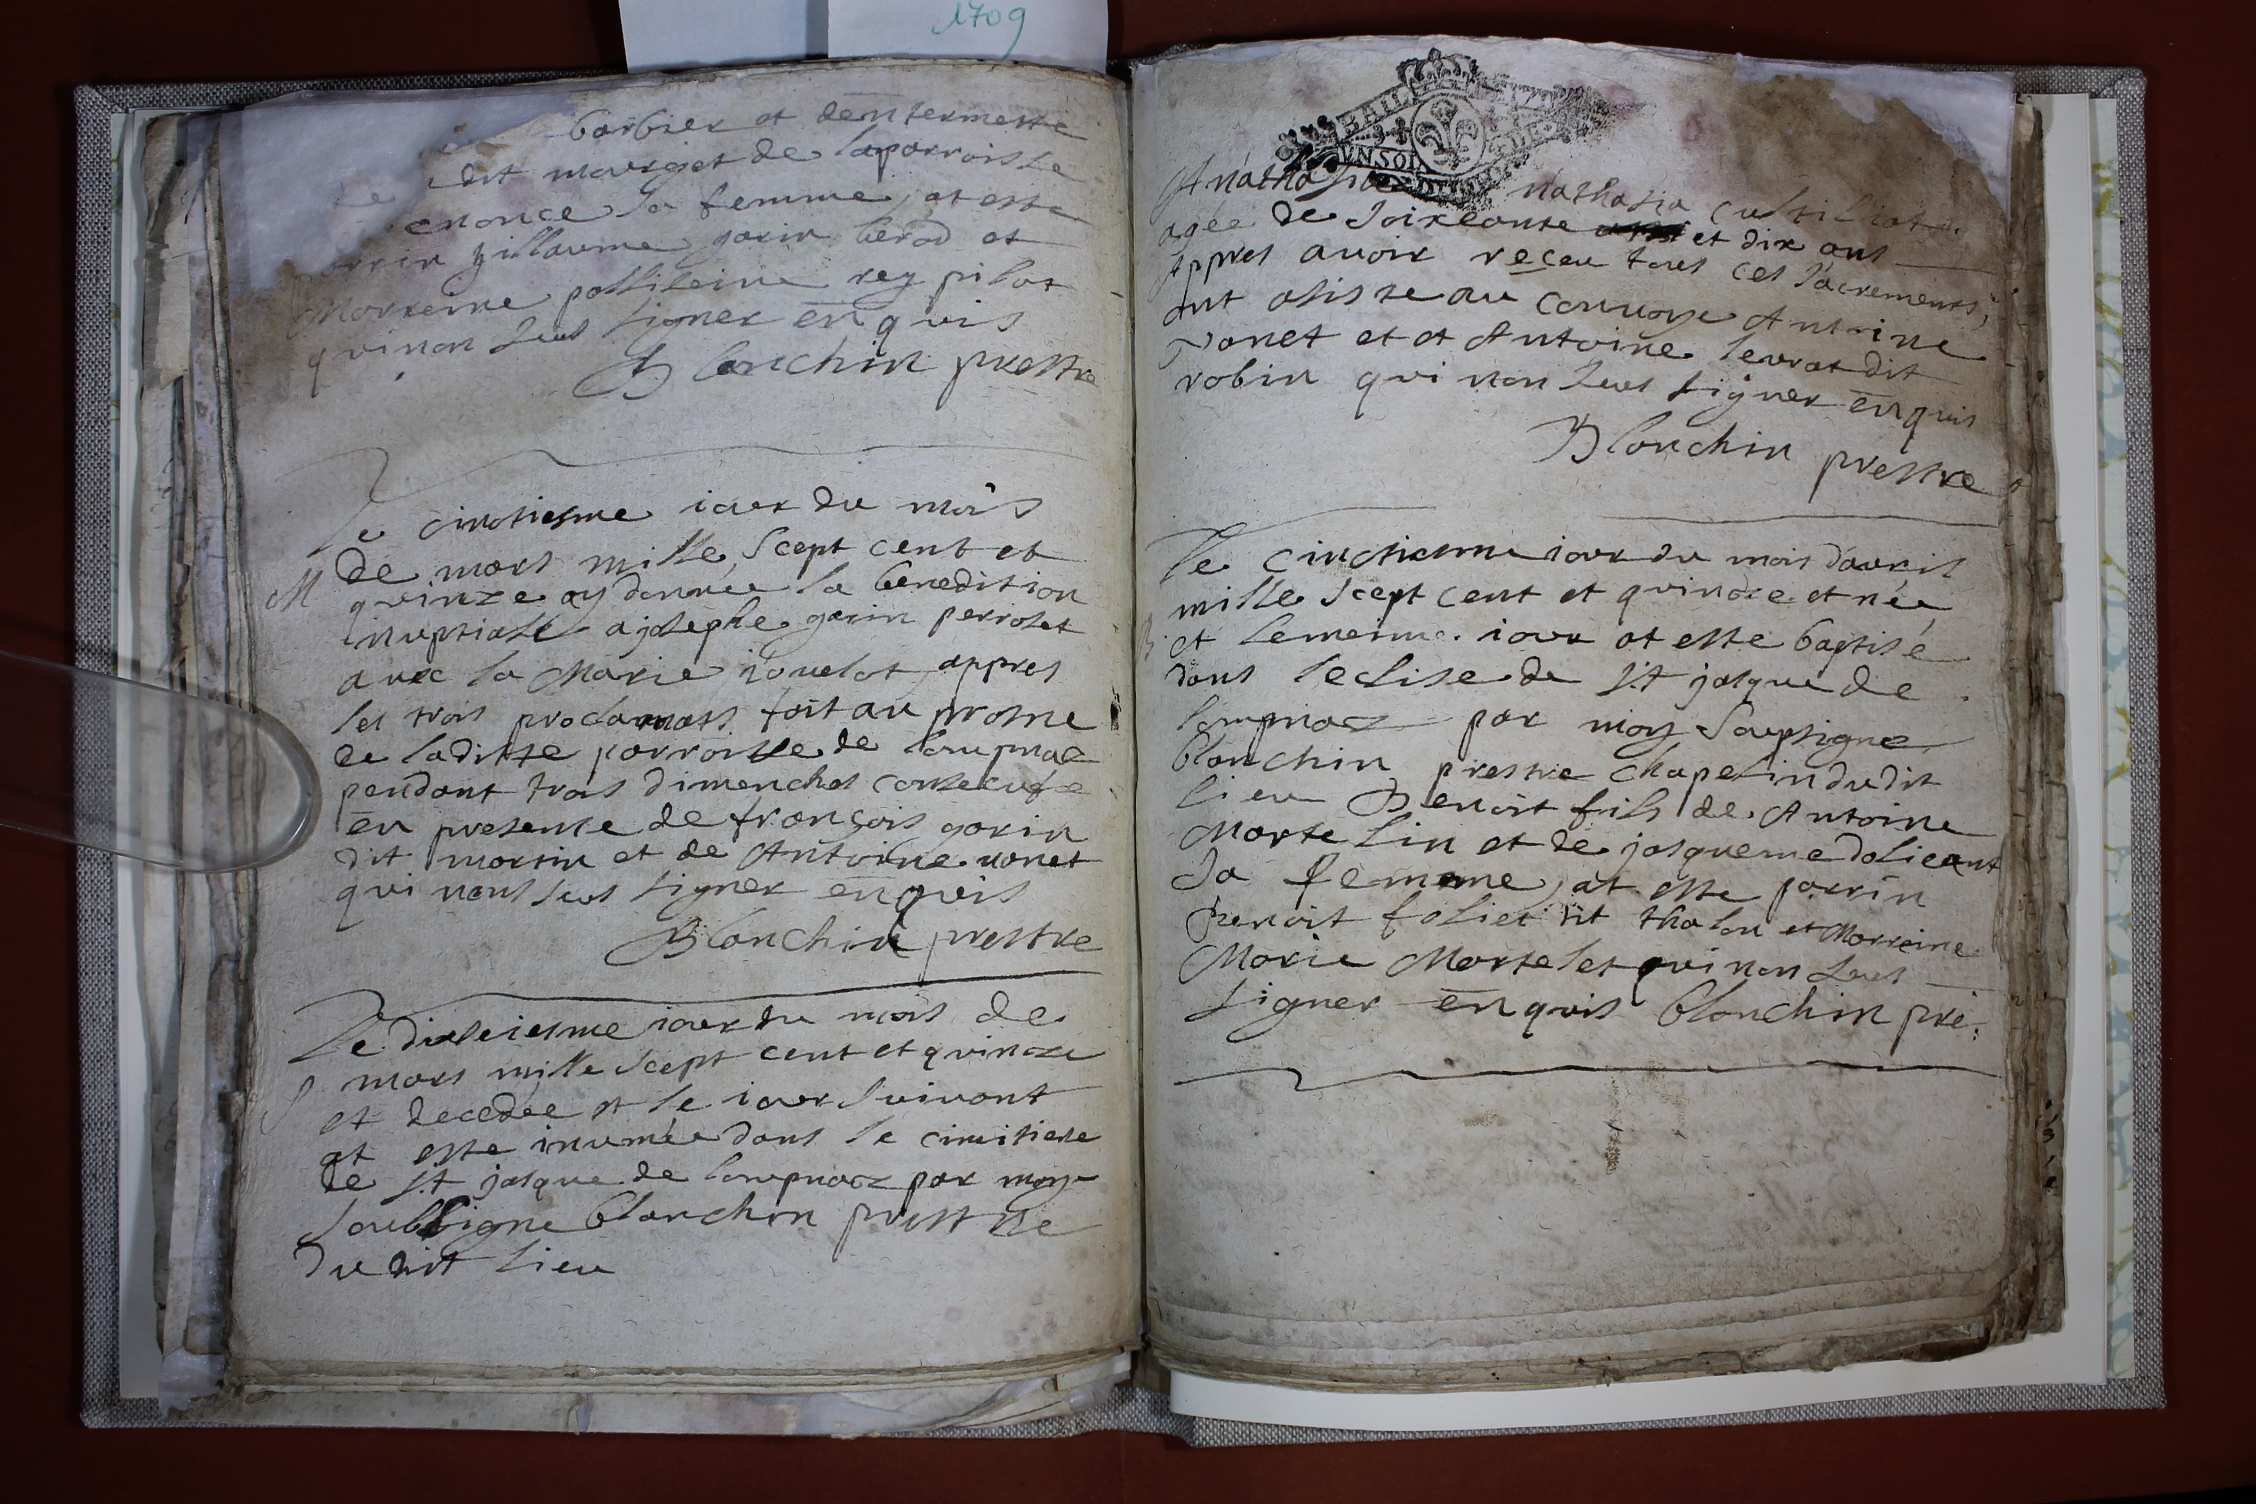 1709
barbier et dentermette
dit mouriet de laparroisse
enonce sa femme, at este
parrin guillaume garin berod et
Marreine pollileine rey pilot
qui non seus signer enquis
Blanchin prestre
Le cinotiesme iour du mois
de mars mille scept cent et
M quinze ay donnée la benedition
nuptiale a josephe garin perrolet
avec la Marie iouelot appres
les trois proclamats fait au prosne
de laditte parroisse de loupnac
pendant trois dimenches
en presense de françois garin
dit martin et de Antoine vonet
qui nons seus signer enquis
Blanchin prestre
Le disieiesme iour du mois de
S mars mille scept cent et quinoze
et decedée et le iour suivant
at este inumée dans le cimitiere
de St jasque de loupnacz par moy
soubsigne blanchin prestre
du dit lieu
Anathasia nathasia
agée de soixeante et dix ans
Appres avoir receu tous ces sacrements,
ont asisste au convoye Antoine
vonet et et Antoine levrat dit
robin qui non seus signer enquis
Blanchin prestre
Le cinctiesme iour du mois d'avril
mille scept cent et quinoze et née
B. et lemeime iour at este baptisé
dans leclise de St jasque de
loupnacz par moy soupsigne
blanchin prestre chapelin dudit
lieu Benoit fils de Antoine
Martelin et de jasqueme dolieant
sa femme, at este parrin
Benoit foliet dit thalon et Marreine
Marie Martelet qui non seus
signer enquis blanchin pre: